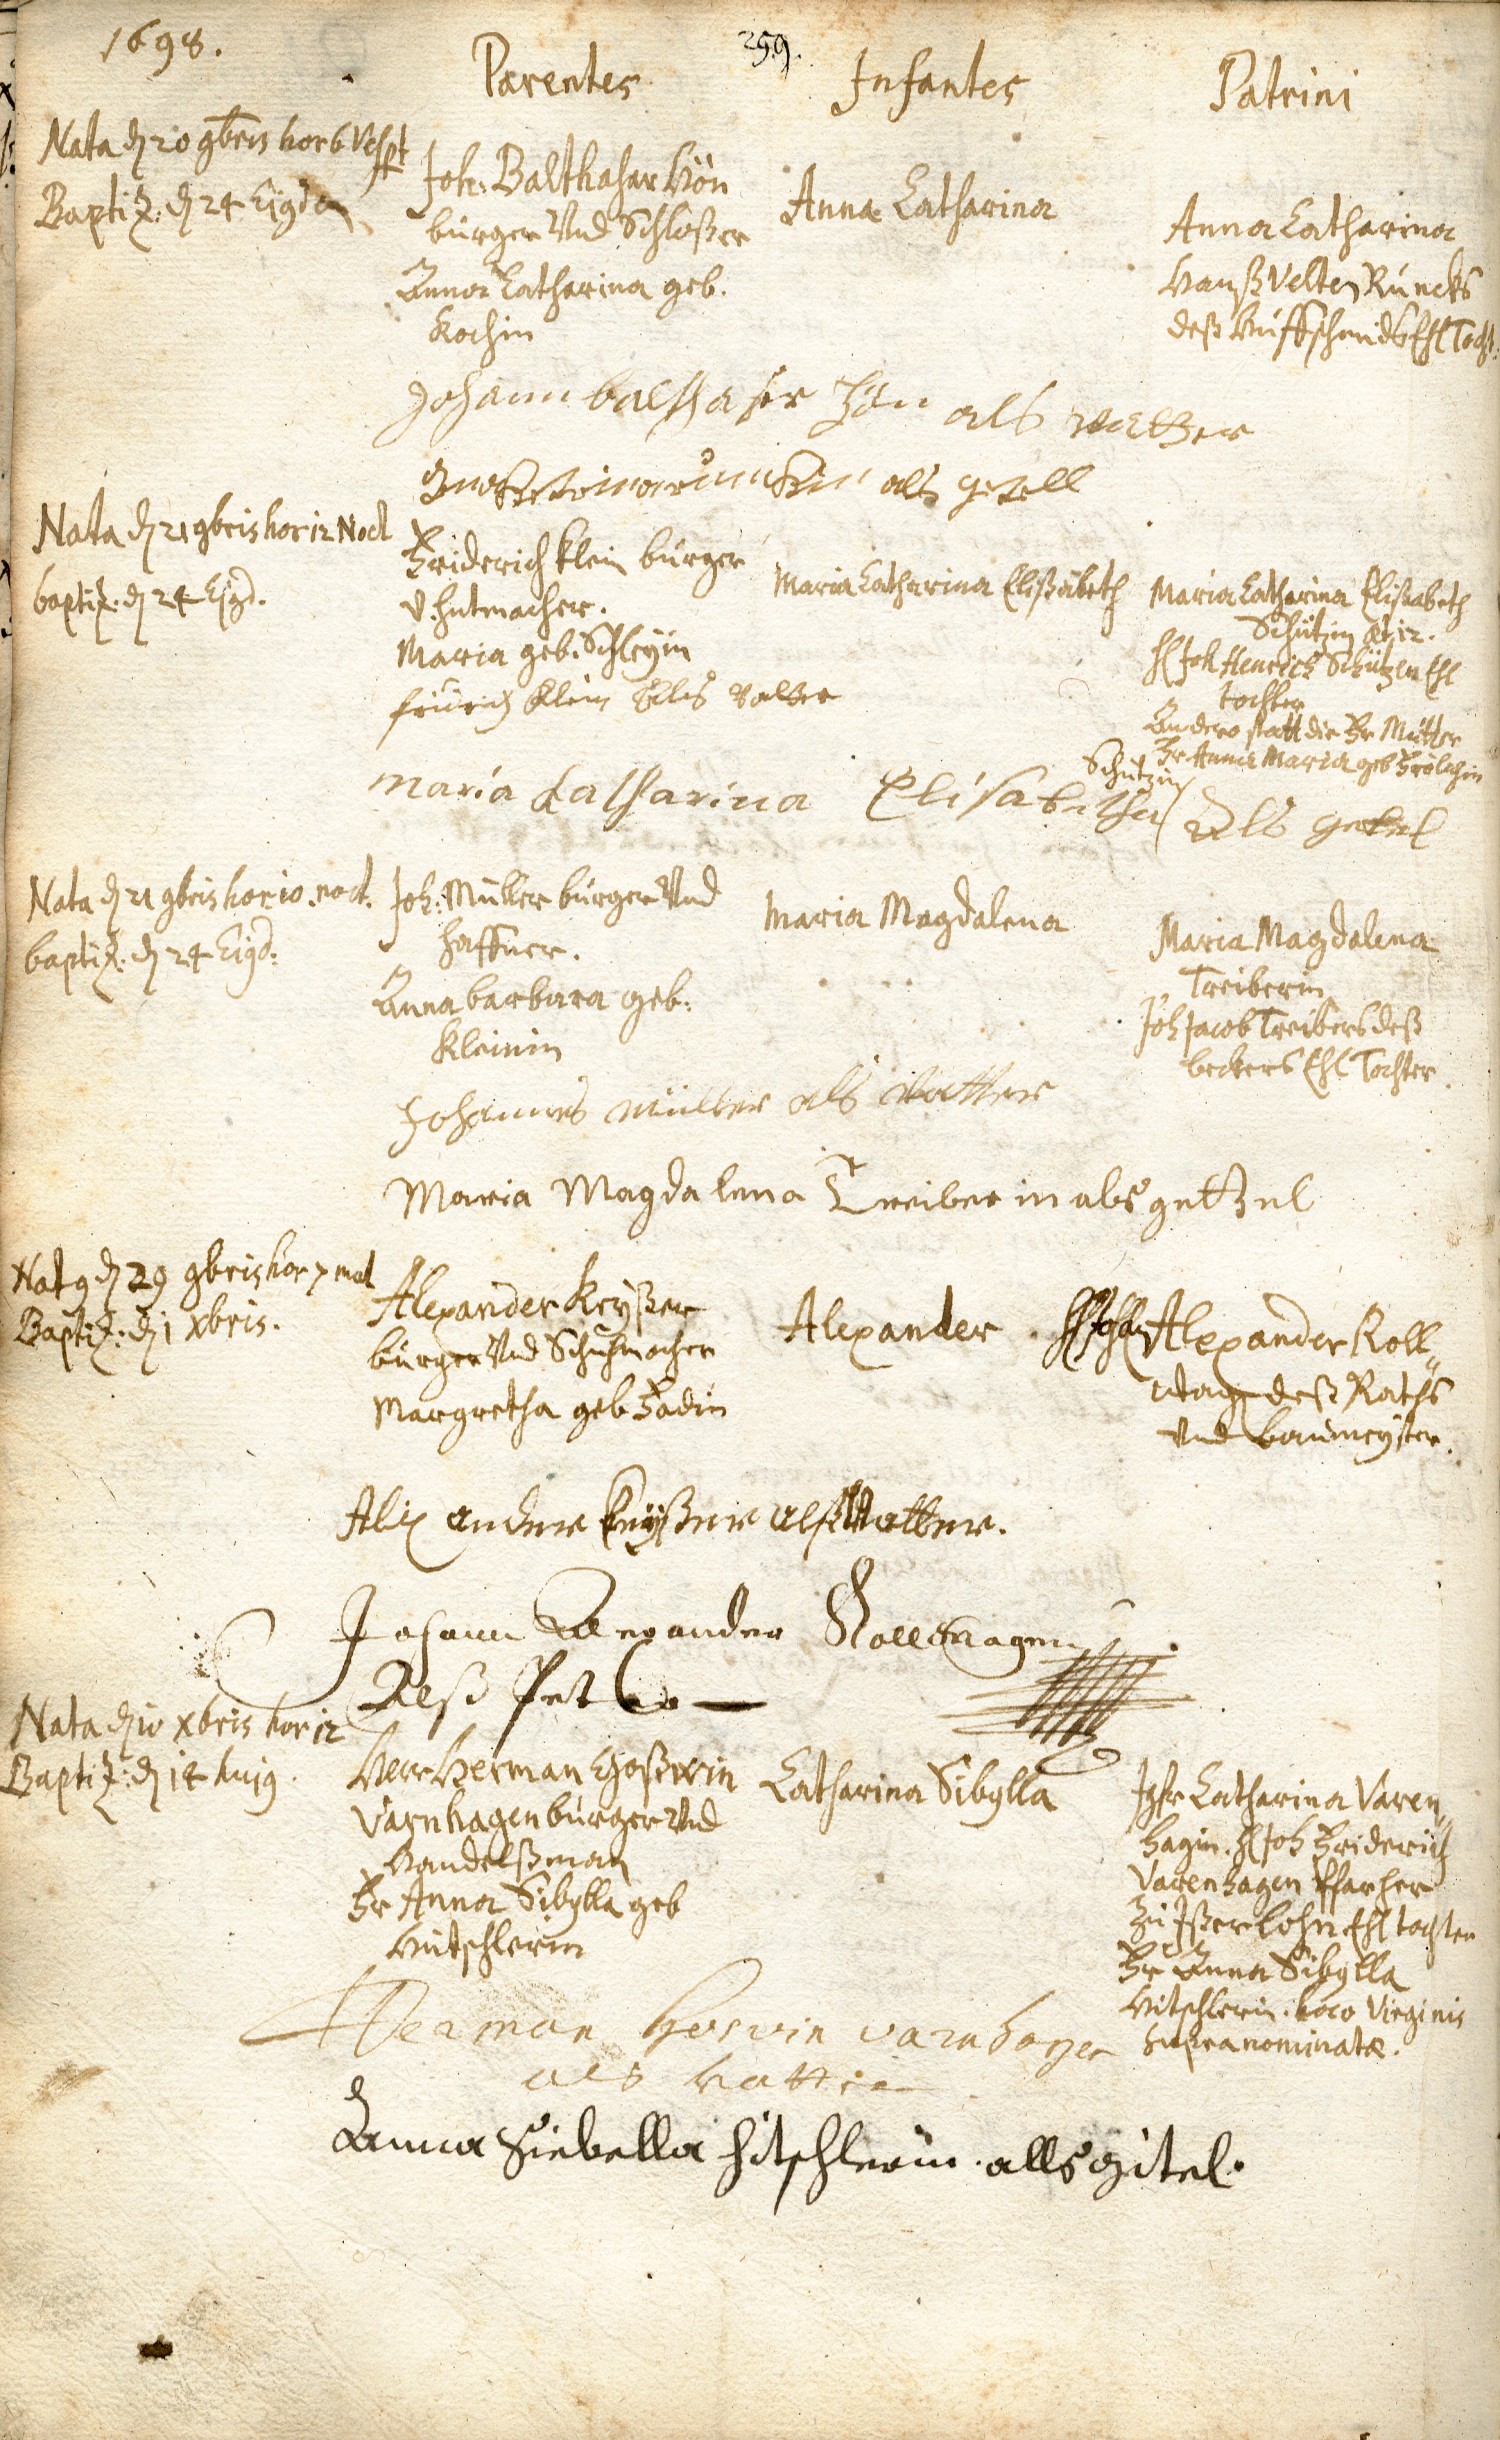 1698.
259.
Parentes
Infantes
Patrini
Nata d 20 9bris hor 6 Vesp
Baptiz: d 24 Eigd
Joh: Balthasar Hön
bürger Und Schloßer
Anna Catharina geb.
Kochin
Anna Catharina
Anna Catharina
Hanß Velten Runcks
deß Huffschmids Ehl Tocht:
Johann balthaser Hön als vatter
als getell
Nata d 21 9bris hor 12 Noct
baptiz: d 24 Ejgd.
Friderich Klein bürger
v. hutmacher.
Maria geb. Schleyin
Maria Catharina Elißabeth
Maria Catharina Elisabeth
Schützin æt. 12.
H Joh Henrich Schützen Ehl
tochter
Andero statt die Fr Mütter
Fr Anna Maria geb Frölichin
fridrich Klein Als vatter
Schützin
maria Catharina Elisabetha als getel
Nata d 21 9bris hor 10. noct.
baptiz: d 24 Eigd:
Joh: Müller bürger Und
haffner.
Anna barbara geb:
Kleinin
Maria Magdalena
Maria Magdalena
Treiberin
Joh Jacob Treibers deß
beckers Ehl Tochter
Johannes müller als vatter
Maria Magdalena Treiberin als gettel
Nat9 d 29 9bris hor 7 mat
Baptiz: d 1 Xbris.
Alexander Keyßer
bürger Und Schuhmacher
Margretha geb Fadin
Alexander
H Joh Alexander Roll
wag deß Raths
Und baumeyster.
Alexander Keyßer alß Vatter.
Johann Alexander Rollwagen
Alß Pet
Nata d 10 Xbris hor 12
Baptiz: d 14 huj9
Herr Herman Goßwin
Varnhagen bürger Und
Handelßman
Fr Anna Sibylla geb
Hitschlerin
Catharina Sibylla
Jgfr Catharina Varen
hagin. H Joh Friderich
Varenhagen Pfarher
Zu Ißerlohn Ehl tochter
Fr Anna Sibylla
Hitschlerin. loco Virginis
supra nominatæ.
Herman Goswin varnhagen
als vatter
Anna Siebella hitschlerin. alls gitel.